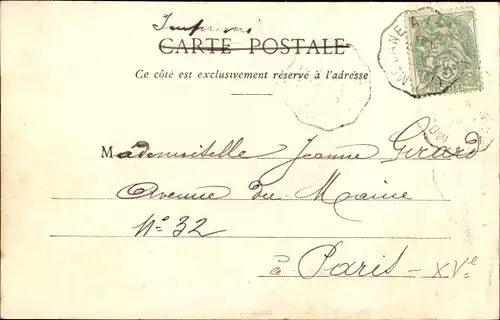 Imprimé
CARTE POSTALE
Ce côté est exclusivement réservé à l'adresse
Mademoiselle Jeanne Girard
Avenue du Maine
N° 32
à Paris - XVe